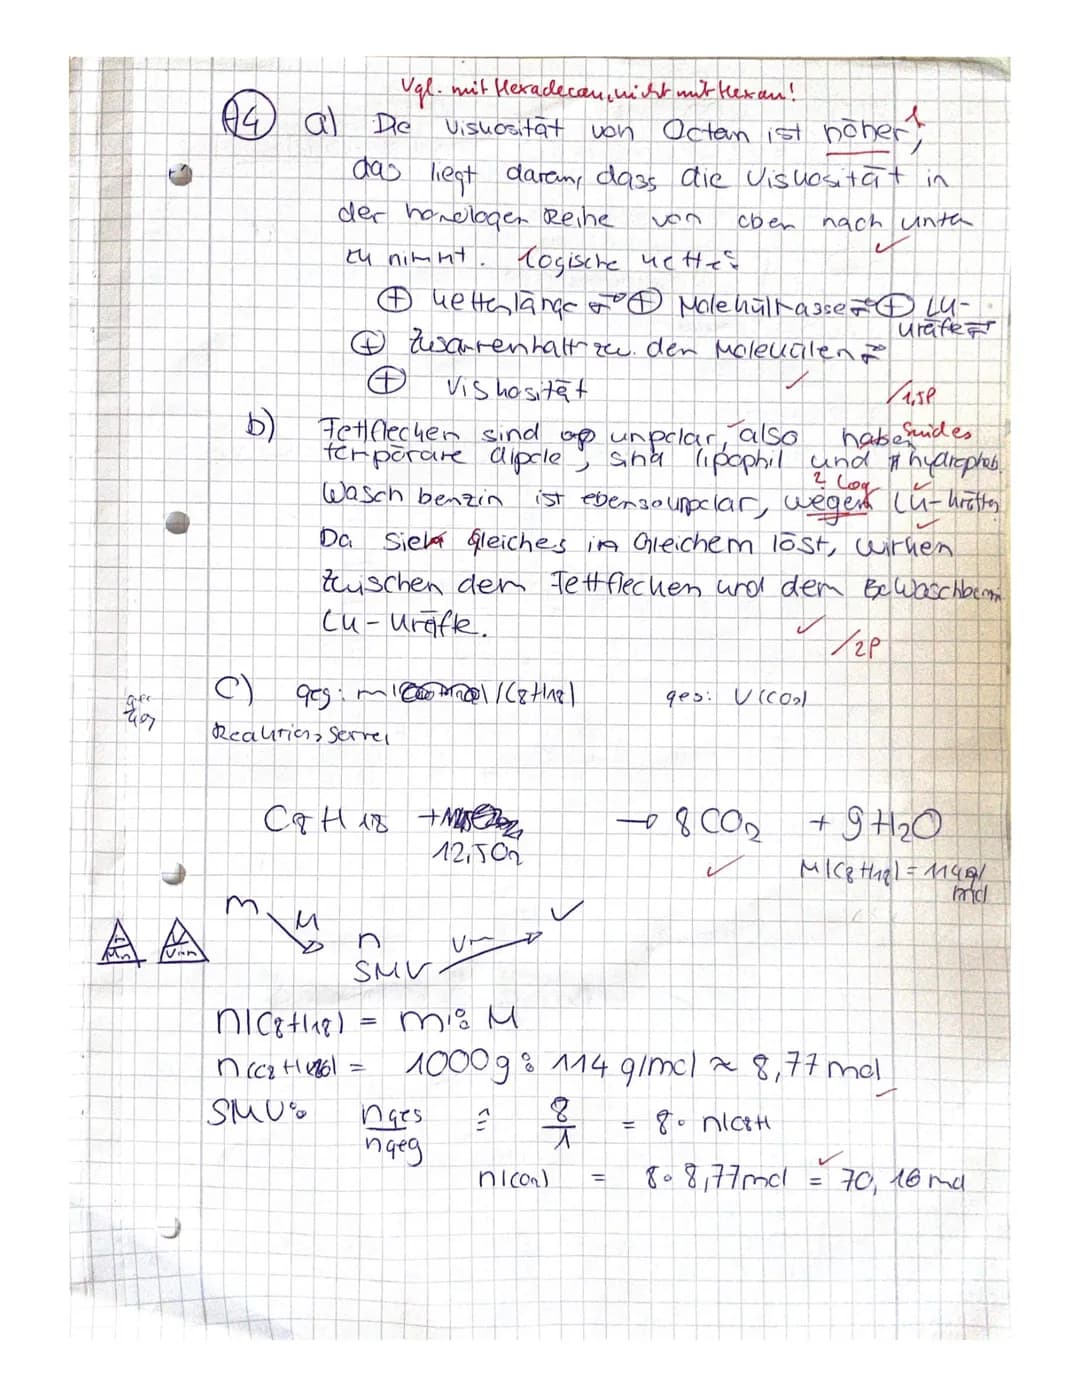 Vgl. mit Hexadecan, nicht mit Hexan!
A4 a) Die Viskosität von Octan ist höher,
das liegt daran, dass die Viskosität in
der homologen Reihe von oben nach unten
zu nimmt. Logische Kette:
⊕ Kettenlänge ⇒ ⊕ Molekülmasse ⇒ ⊕ LK-
Kräfte ⇒
⊕ Zusammenhalt zw. den Molekülen ⇒
⊕ Viskosität
/1,5P
b) Fettflecken sind unpolar, also haben
temporäre dipole, sind lipophil und hydrophob.
? Log
Waschbenzin ist ebenso unpolar, wegen LK-Kräften
Da Sich gleiches in Gleichem löst, wirken
zwischen dem Fettflecken und dem Waschbenzin
LK-Kräfte.
/2P
c) geg: m(C8H18) ges: V(CO2)
Reaktionsschema
C8H18 + 12,5O2 → 8CO2 + 9H2O
M(C8H18) = 114g/
mol
m M n Vm V
SMV
n(C8H18) = m : M
n(C8H18) = 1000g : 114 g/mol ≈ 8,77 mol
SMV: nges/ngeg ≙ 8/1 = 8 · n(C8H
n(CO2) = 8 · 8,77mol = 70,16 mol